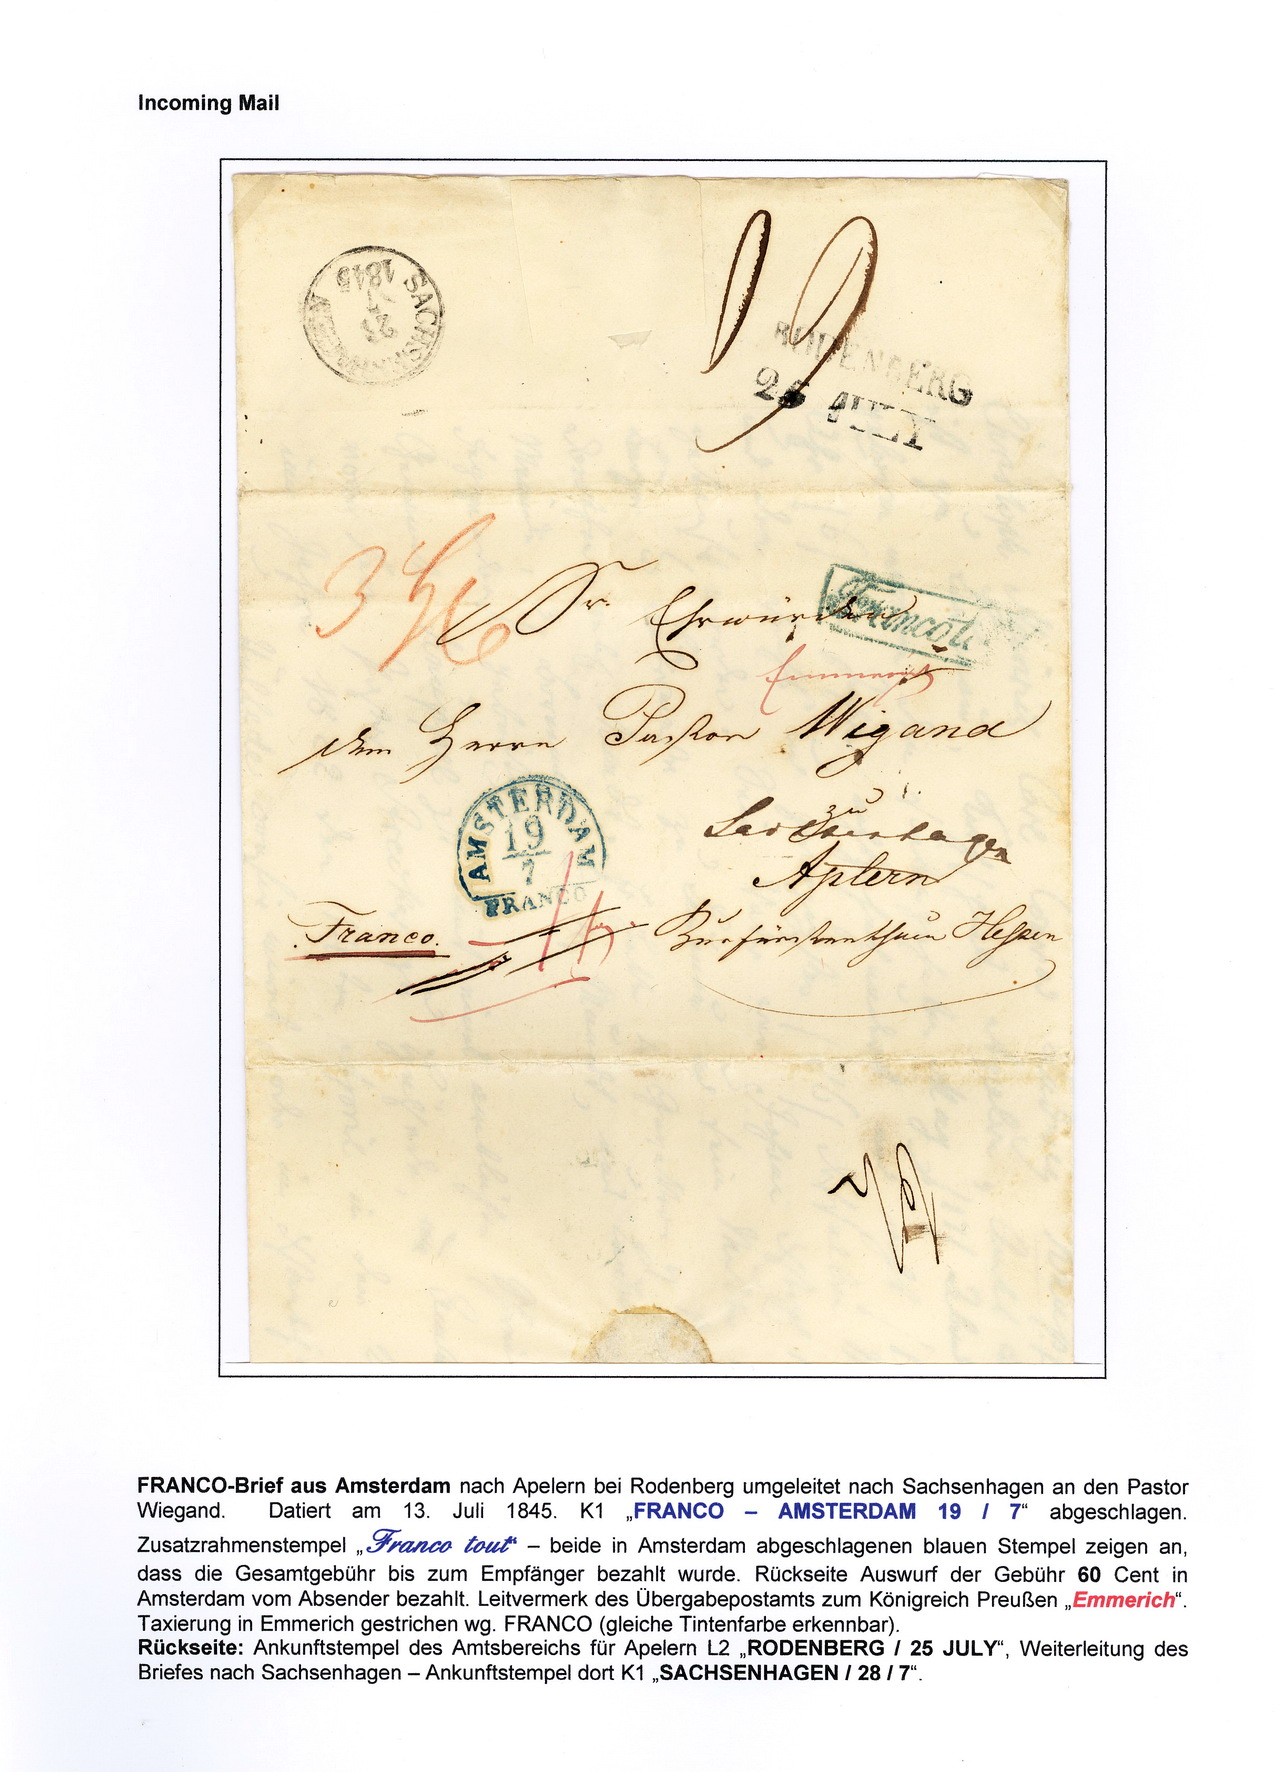 Incoming Mail
SACHSENHAGEN
1845
RODENBERG
25 JULY
Sr. Ehrwürden
Franco tout
Emmerich
dem Herrn Pastor Wigand
zu
Sachsenhagen
Aplern
AMSTERDAM
19
7
FRANCO
Franco.
Kurfürstenthum Hessen
FRANCO-Brief aus Amsterdam nach Apelern bei Rodenberg umgeleitet nach Sachsenhagen an den Pastor
Wiegand. Datiert am 13. Juli 1845. K1 „FRANCO – AMSTERDAM 19 / 7“ abgeschlagen.
Zusatzrahmenstempel „Franco tout“ – beide in Amsterdam abgeschlagenen blauen Stempel zeigen an,
dass die Gesamtgebühr bis zum Empfänger bezahlt wurde. Rückseite Auswurf der Gebühr 60 Cent in
Amsterdam vom Absender bezahlt. Leitvermerk des Übergabepostamts zum Königreich Preußen „Emmerich“.
Taxierung in Emmerich gestrichen wg. FRANCO (gleiche Tintenfarbe erkennbar).
Rückseite: Ankunftstempel des Amtsbereichs für Apelern L2 „RODENBERG / 25 JULY“, Weiterleitung des
Briefes nach Sachsenhagen – Ankunftstempel dort K1 „SACHSENHAGEN / 28 / 7“.